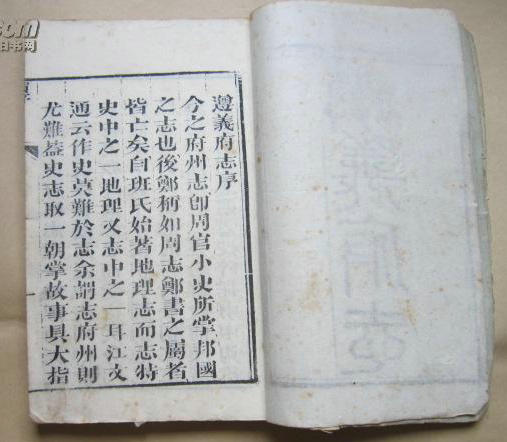 遵義府志序
今之府州志即周官小史所掌邦國
之志也後鄭稱如周志鄭書之屬者
皆亡矣自班氏始著地理志而志特
史中之一地理又志中之一耳江文
通云作史莫難於志余謂志府州則
尤難蓋史志取一朝掌故事具大指